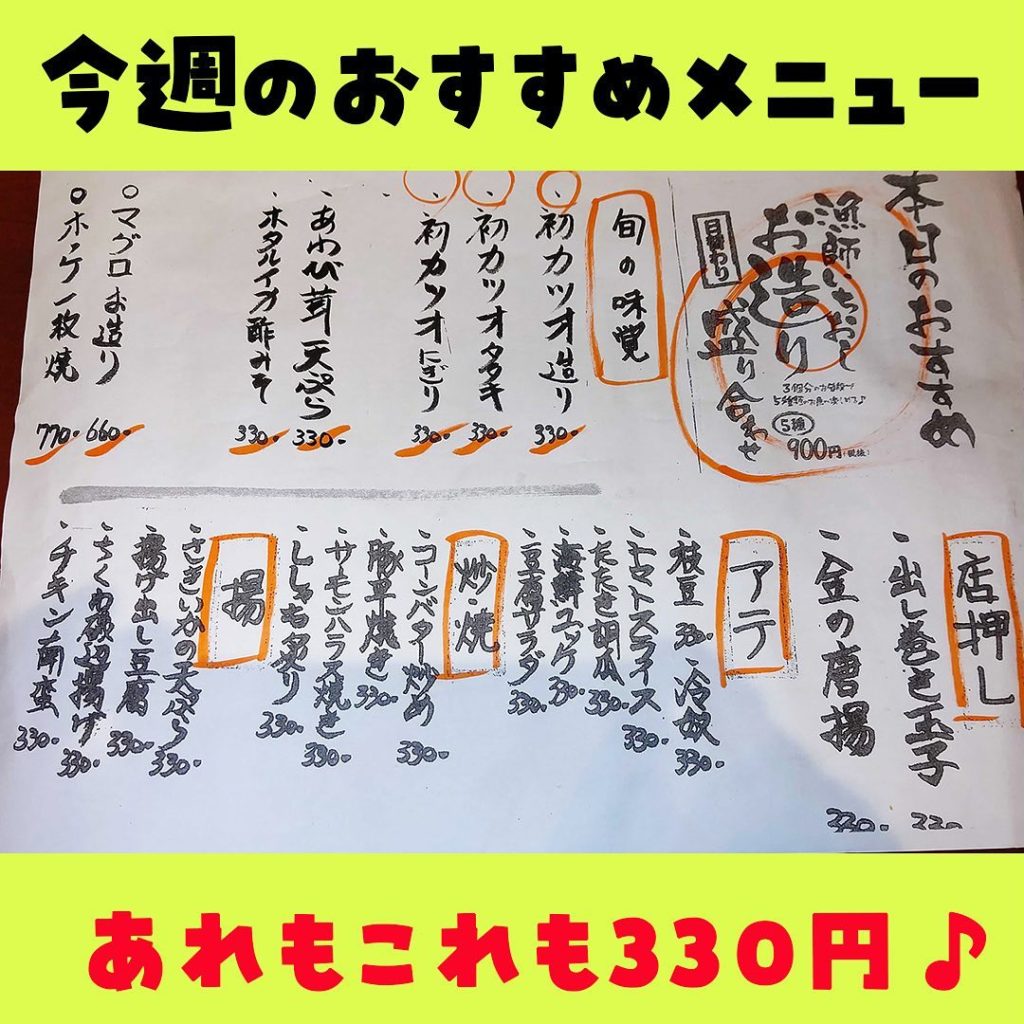 今週のおすすめメニュー
本日のおすすめ
漁師いちおし
お造り
日替わり
盛り合わせ
5種
900円(税抜)
旬の味覚
、初カツオ造り 330-
、初カツオタタキ 330-
、初カツオにぎり 330-
、あわび茸天ぷら 330-
、ホタルイカ酢みそ 330-
○マグロお造り 660-
○ホッケ一枚焼 770-
店押し
、出し巻き玉子 330-
、金の唐揚 330-
アテ
、枝豆 330- 冷奴 330-
、トマトスライス 330-
、たたき胡瓜 330-
、海鮮ユッケ 330-
、豆腐サラダ 330-
炒・焼
、コーンバター炒め 330-
、豚平焼き 330-
、サーモンハラス焼き 330-
、ししゃも炙り 330-
揚
、さきいかの天ぷら 330-
、揚げ出し豆腐 330-
、ちくわ磯辺揚げ 330-
、チキン南蛮 330-
あれもこれも330円♪